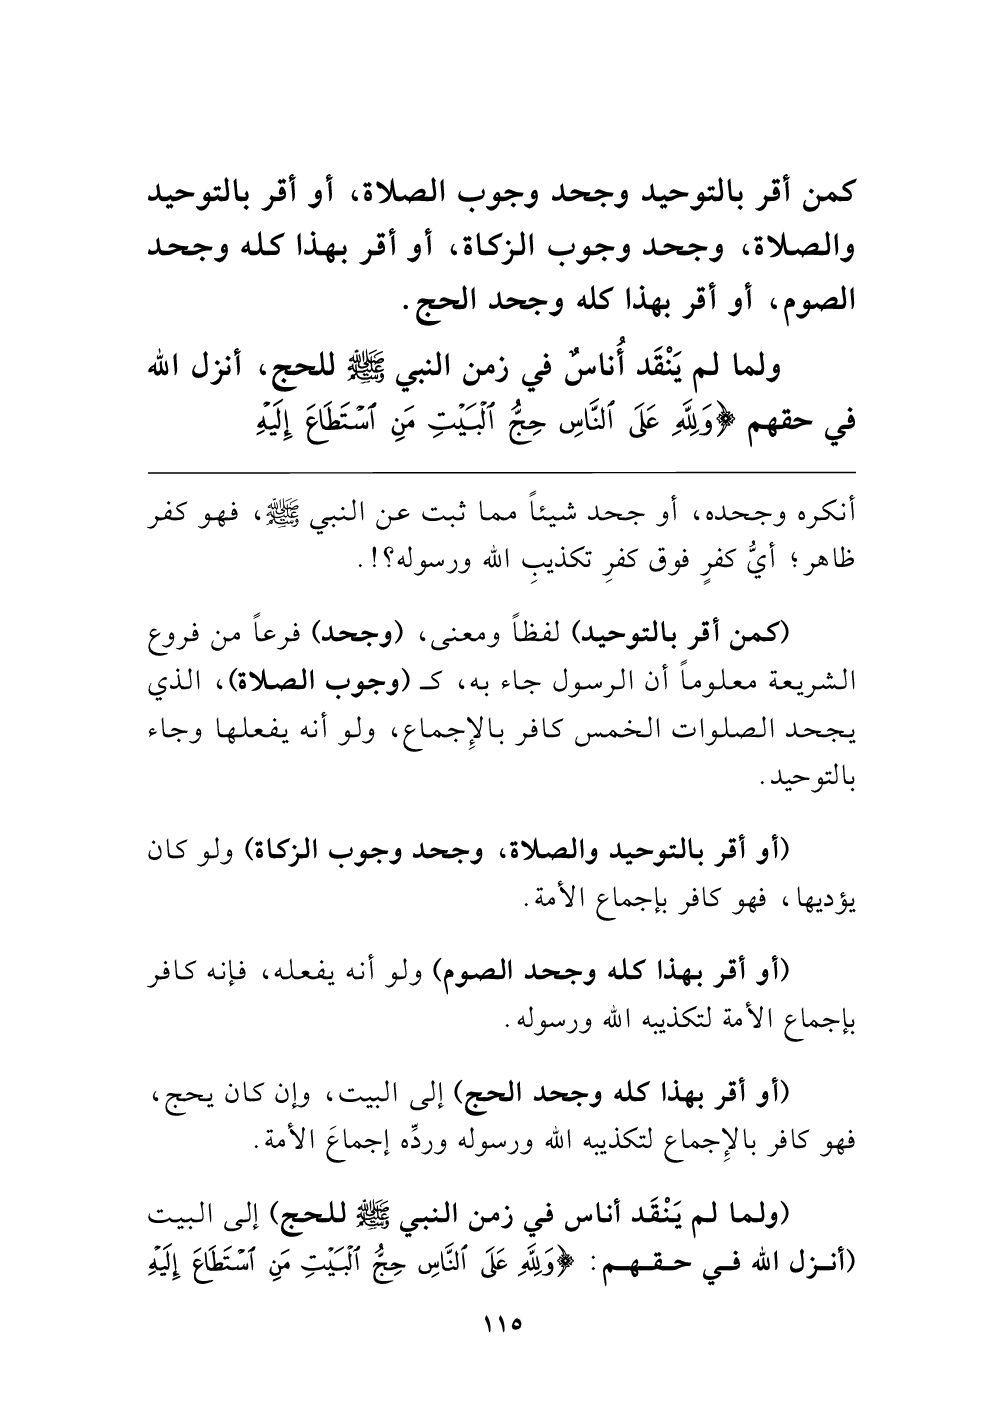 كمن أقر بالتوحيد وجحد وجوب الصلاة، أو أقر بالتوحيد
والصلاة، وجحد وجوب الزكاة، أو أقر بهذا كله وجحد
الصوم، أو أقر بهذا كله وجحد الحج.
ولما لم يَنْقَد أُناسٌ في زمن النبي ﷺ للحج، أنزل الله
في حقهم ﴿وَلِلَّهِ عَلَى ٱلنَّاسِ حِجُّ ٱلْبَيْتِ مَنِ ٱسْتَطَاعَ إِلَيْهِ
أنكره وجحده، أو جحد شيئاً مما ثبت عن النبي ﷺ، فهو كفر
ظاهر؛ أيُّ كفرٍ فوق كفرِ تكذيبِ الله ورسوله؟!.
(كمن أقر بالتوحيد) لفظاً ومعنى، (وجحد) فرعاً من فروع
الشريعة معلوماً أن الرسول جاء به، كـ (وجوب الصلاة)، الذي
يجحد الصلوات الخمس كافر بالإِجماع، ولو أنه يفعلها وجاء
بالتوحيد.
(أو أقر بالتوحيد والصلاة، وجحد وجوب الزكاة) ولو كان
يؤديها، فهو كافر بإجماع الأمة.
(أو أقر بهذا كله وجحد الصوم) ولو أنه يفعله، فإنه كافر
بإجماع الأمة لتكذيبه الله ورسوله.
(أو أقر بهذا كله وجحد الحج) إلى البيت، وإن كان يحج،
فهو كافر بالإِجماع لتكذيبه الله ورسوله وردِّه إجماعَ الأمة.
(ولما لم يَنْقَد أناس في زمن النبي ﷺ للحج) إلى البيت
(أنزل الله في حقهم: ﴿وَلِلَّهِ عَلَى ٱلنَّاسِ حِجُّ ٱلْبَيْتِ مَنِ ٱسْتَطَاعَ إِلَيْهِ
١١٥